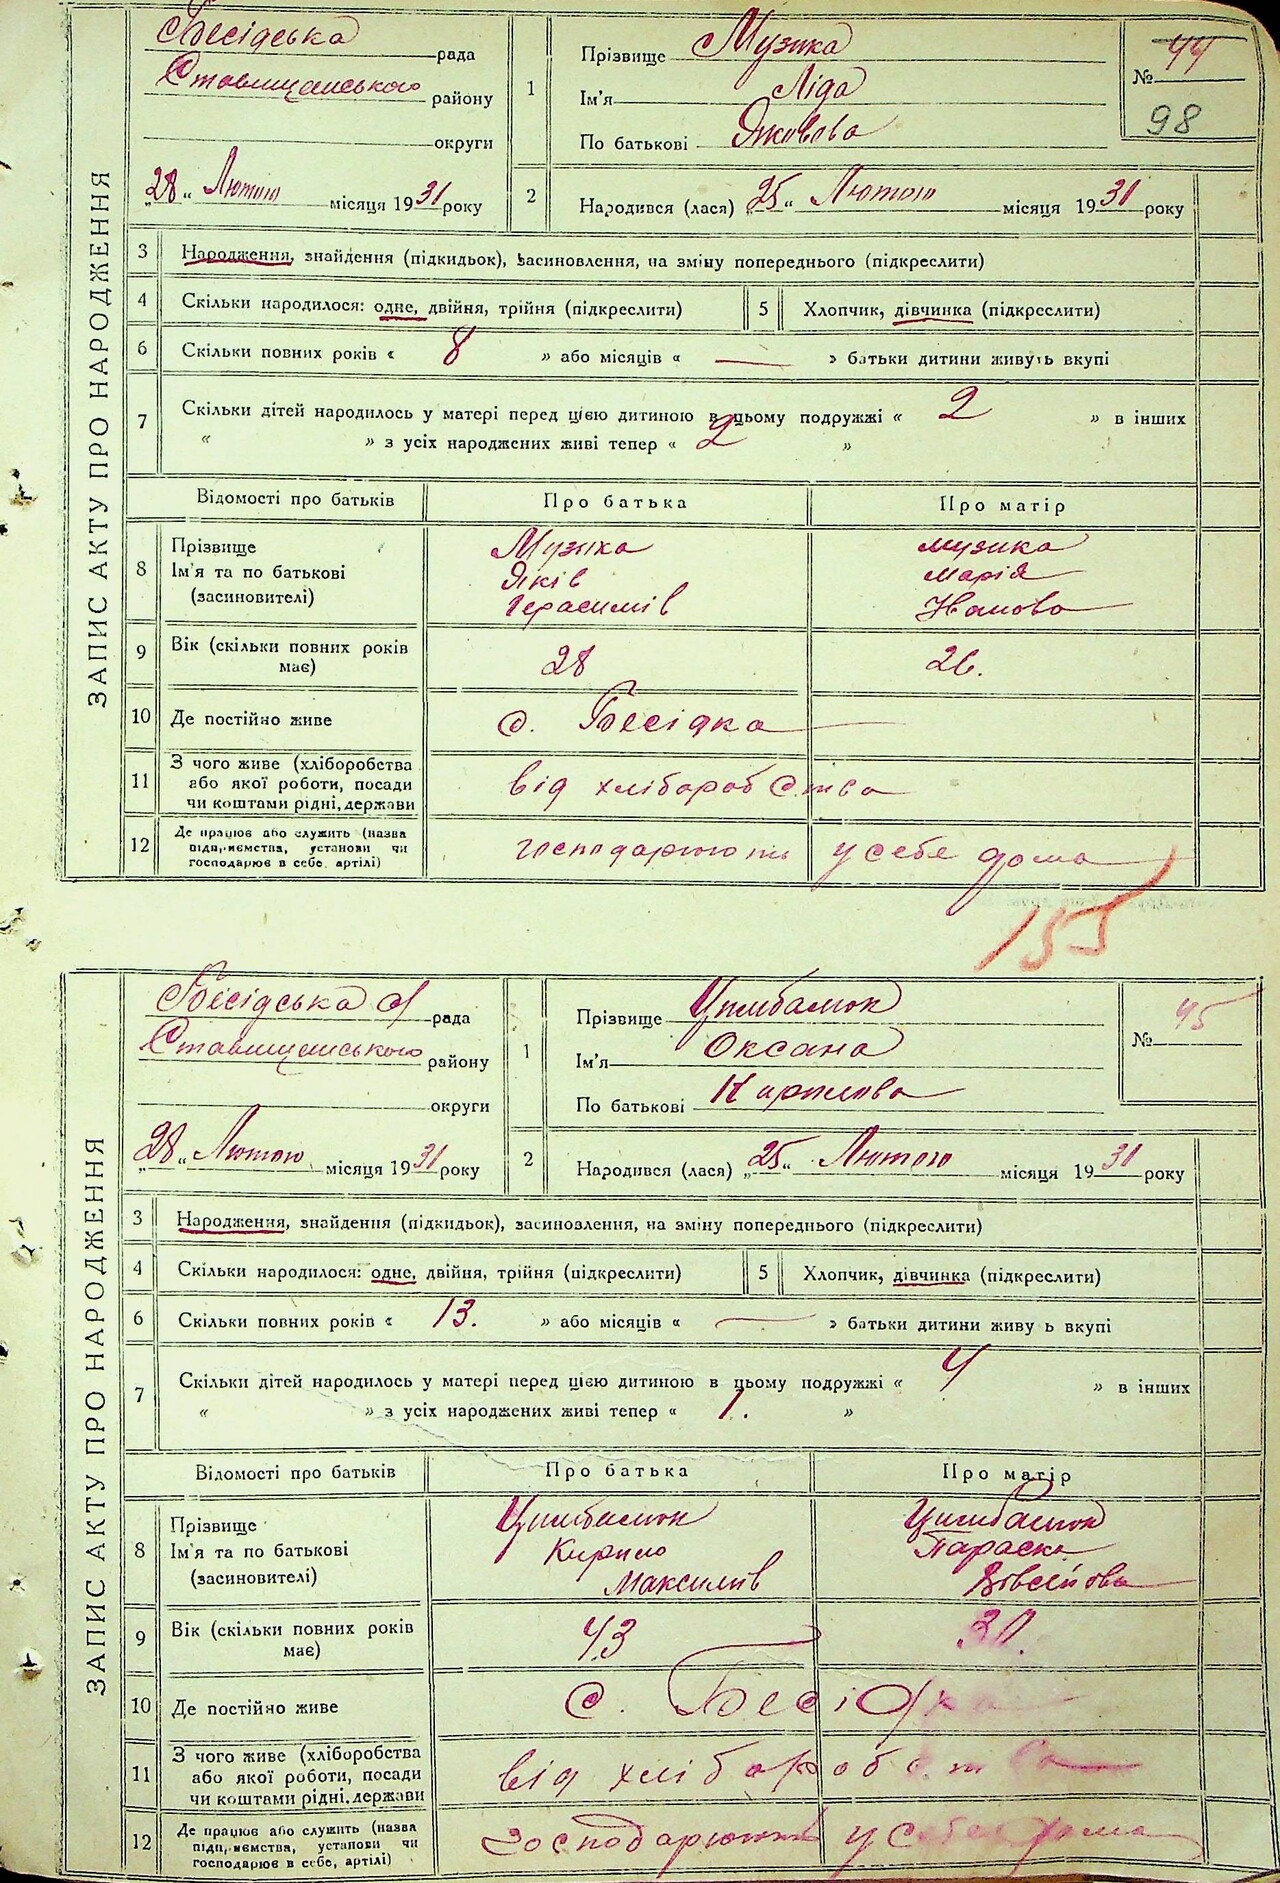 ЗАПИС АКТУ ПРО НАРОДЖЕННЯ
Бесідська рада
Ставищанського району
округи
„28“ Лютого місяця 1931 року
1 Прізвище Музика
Ім'я Ліда
По батькові Яковова
№ 44
98
2 Народився (лася) „25“ Лютого місяця 1931 року
3 Народження, знайдення (підкидьок), засиновлення, на зміну попереднього (підкреслити)
4 Скільки народилося: одне, двійня, трійня (підкреслити) 5 Хлопчик, дівчинка (підкреслити)
6 Скільки повних років « 8 » або місяців « — » батьки дитини живуть вкупі
7 Скільки дітей народилось у матері перед цією дитиною в цьому подружжі « 2 » в інших
« » з усіх народжених живі тепер « 2 »
Відомості про батьків Про батька Про матір
8 Прізвище Музика Музика
Ім'я та по батькові Яків Марія
(засиновителі) Герасимів Иванова
9 Вік (скільки повних років 28 26.
має)
10 Де постійно живе с. Бесідка
11 З чого живе (хліборобства
або якої роботи, посади від хліборобства
чи коштами рідні, держави
12 Де працює або служить (назва
підприємства, установи чи господарюють у себе дома
господарює в себе, артілі)
155
ЗАПИС АКТУ ПРО НАРОДЖЕННЯ
Бесідська с/ рада
Ставищанського району
округи
„28“ Лютого місяця 1931 року
1 Прізвище Цимбалюк
Ім'я Оксана
По батькові Кирилова
№ 45
2 Народився (лася) „25“ Лютого місяця 1931 року
3 Народження, знайдення (підкидьок), засиновлення, на зміну попереднього (підкреслити)
4 Скільки народилося: одне, двійня, трійня (підкреслити) 5 Хлопчик, дівчинка (підкреслити)
6 Скільки повних років « 13. » або місяців « — » батьки дитини живу ь вкупі
7 Скільки дітей народилось у матері перед цією дитиною в цьому подружжі « 4 » в інших
« » з усіх народжених живі тепер « 1. »
Відомості про батьків Про батька Про матір
8 Прізвище Цимбалюк Цимбалюк
Ім'я та по батькові Кирило Параска
(засиновителі) Максимів Вівсеїова
9 Вік (скільки повних років 43 30.
має)
10 Де постійно живе с. Бесідка
11 З чого живе (хліборобства
або якої роботи, посади від хліборобства
чи коштами рідні, держави
12 Де працює або служить (назва
підприємства, установи чи господарюють у себе дома
господарює в себе, артілі)